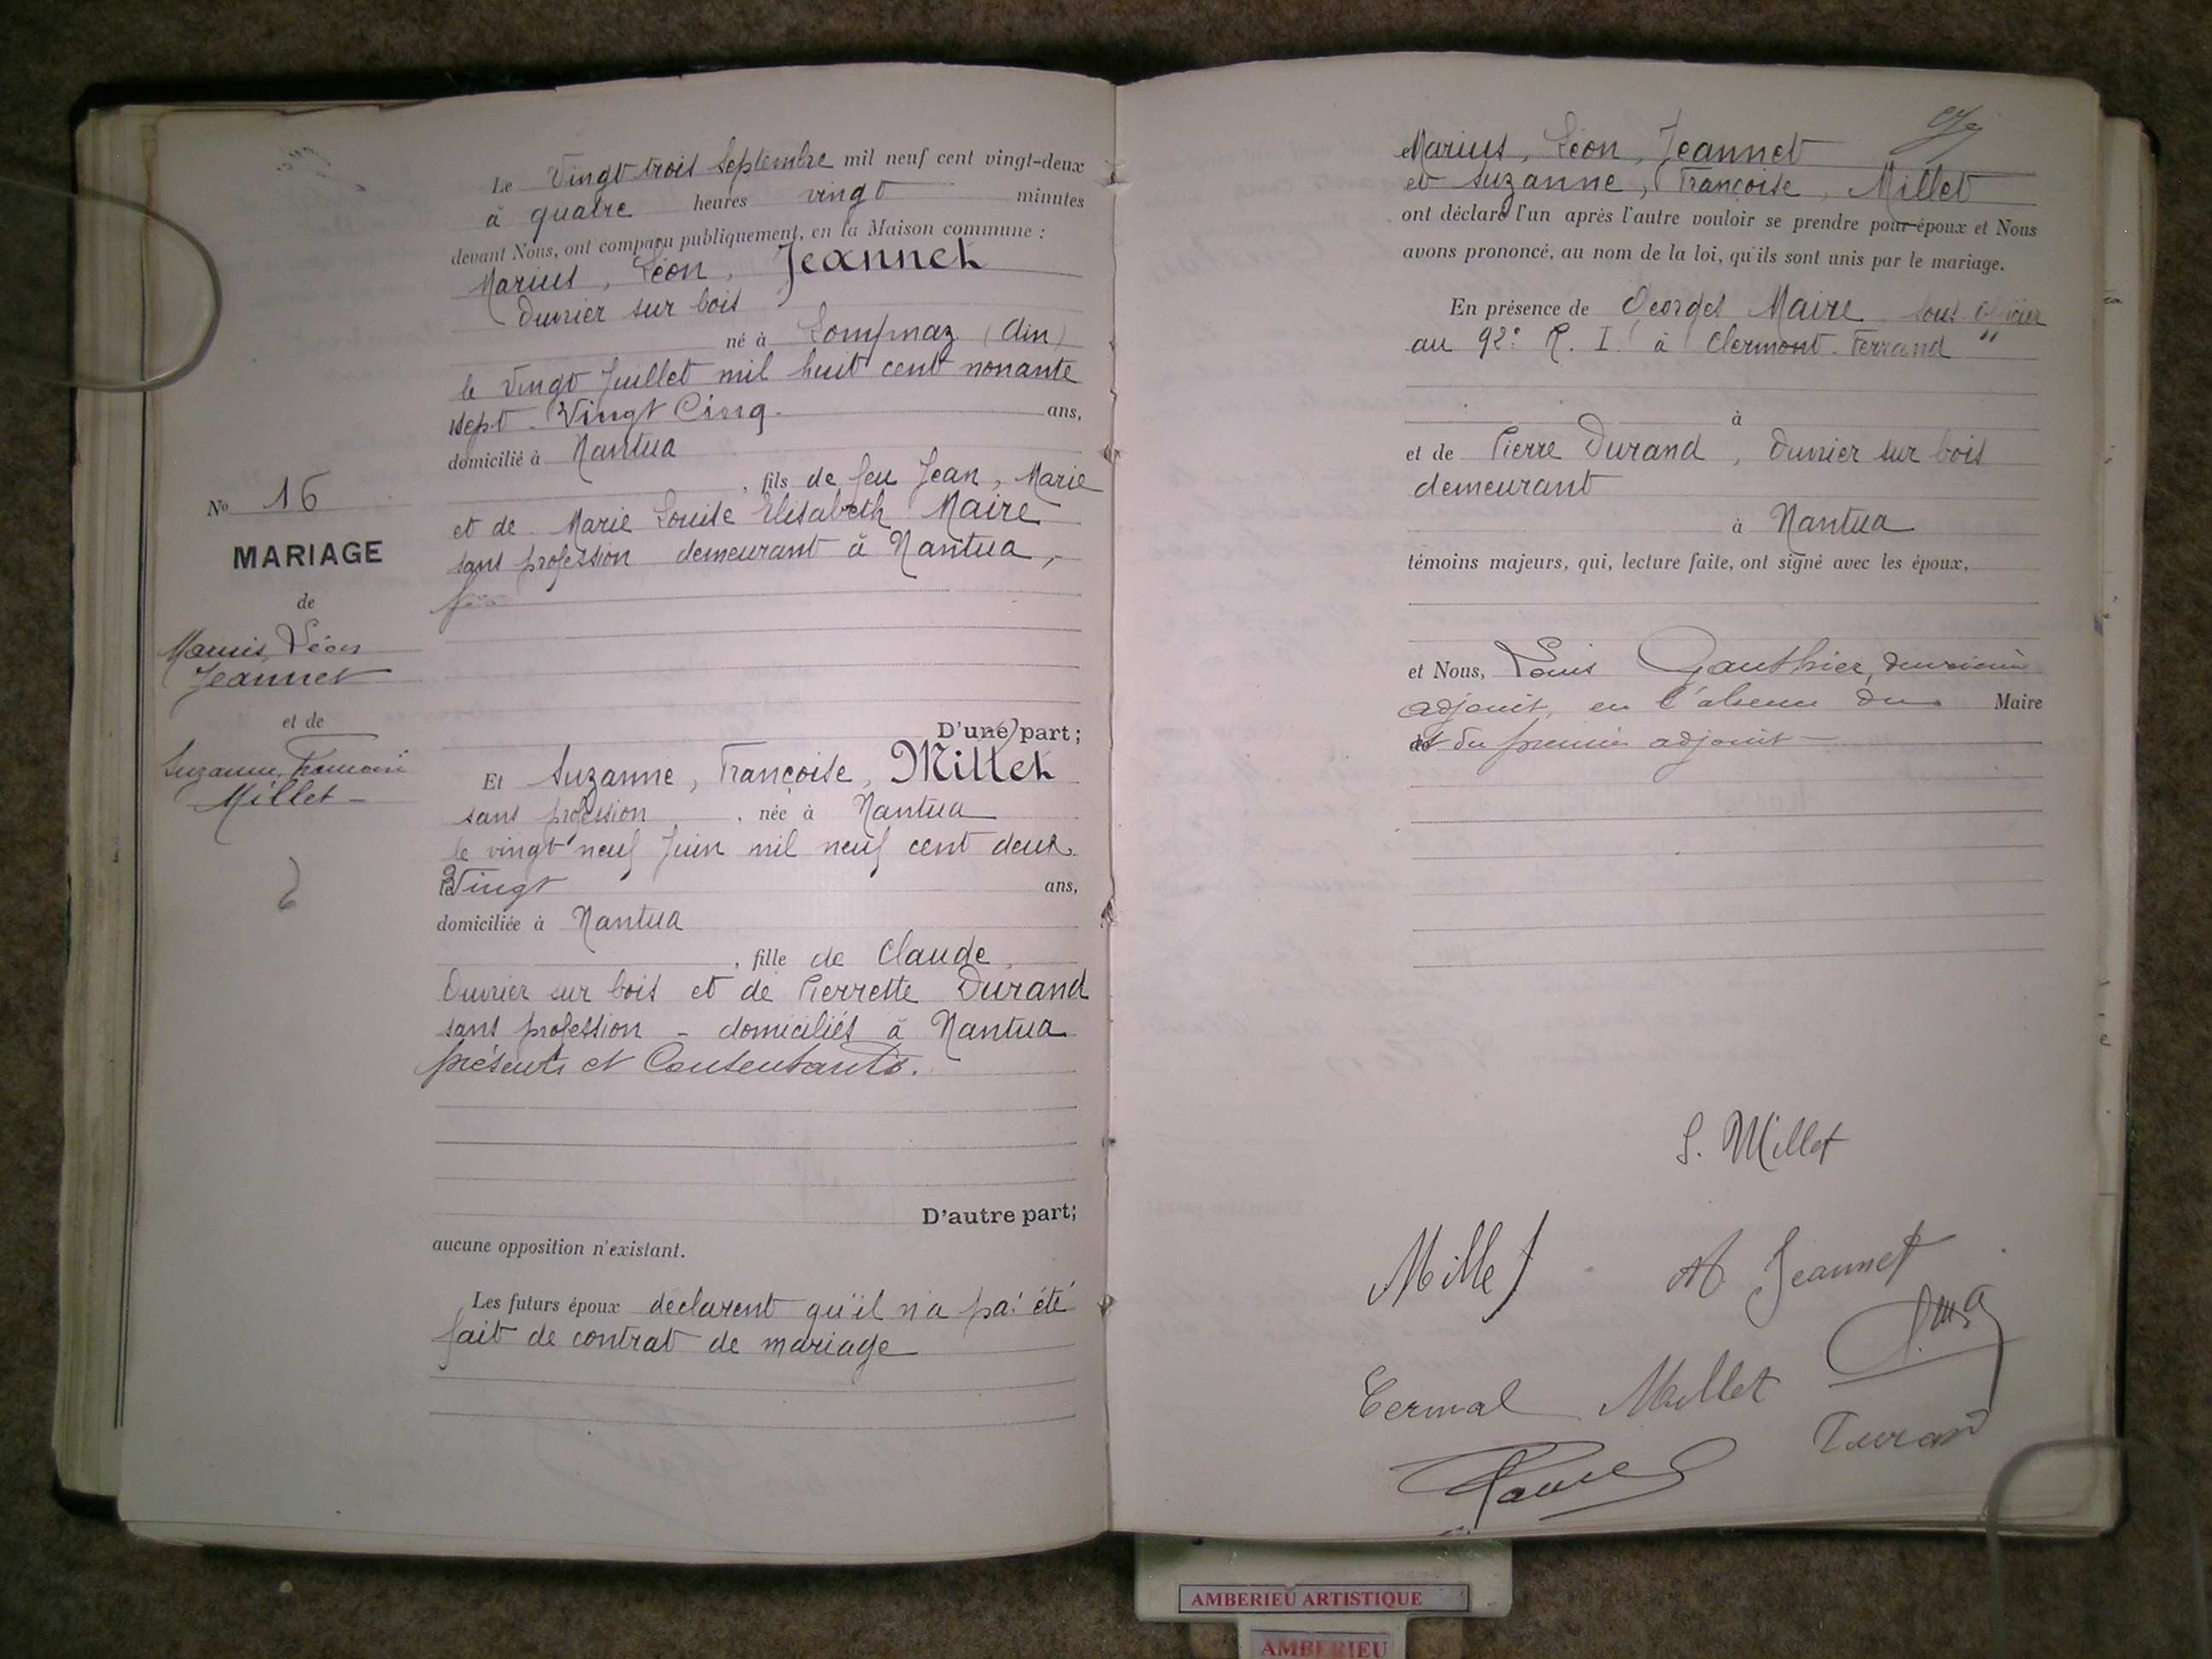 Le Vingt trois Septembre mil neuf cent vingt-deux
à quatre heures vingt minutes
devant Nous, ont comparu publiquement, en la Maison commune :
Marius, Léon, Jeannet
Ouvrier sur bois
né à Lompnaz (Ain)
le vingt Juillet mil huit cent nonante
sept - Vingt Cinq ans,
domicilié à Nantua
, fils de feu Jean, Marie
et de Marie Louise Elisabeth Maire
sans profession demeurant à Nantua,
No 16
MARIAGE
de
Marius Léon
Jeannet
et de
Suzanne, Françoise
Millet
D'une part;
Et Suzanne, Françoise, Millet
sans profession, née à Nantua
le vingt neuf Juin mil neuf cent deux
Vingt ans,
domiciliée à Nantua
, fille de Claude,
Ouvrier sur bois et de Pierrette Durand
sans profession - domiciliés à Nantua
présents et Consentants.
D'autre part;
aucune opposition n'existant.
Les futurs époux déclarent qu'il n'a pas été
fait de contrat de mariage
Marius, Léon, Jeannet
et Suzanne, Françoise, Millet
ont déclaré l'un après l'autre vouloir se prendre pour époux et Nous
avons prononcé, au nom de la loi, qu'ils sont unis par le mariage.
En présence de Georges Maire sous officier
au 92e R. I. à Clermont-Ferrand "
à
et de Pierre Durand, Ouvrier sur bois
demeurant
à Nantua
témoins majeurs, qui, lecture faite, ont signé avec les époux,
et Nous, Louis Gauthier, deuxième
adjoint, en l'absence du Maire
et du premier adjoint
S. Millet
Millet
M Jeannet
Millet
Durand
AMBERIEU ARTISTIQUE
AMBERIEU